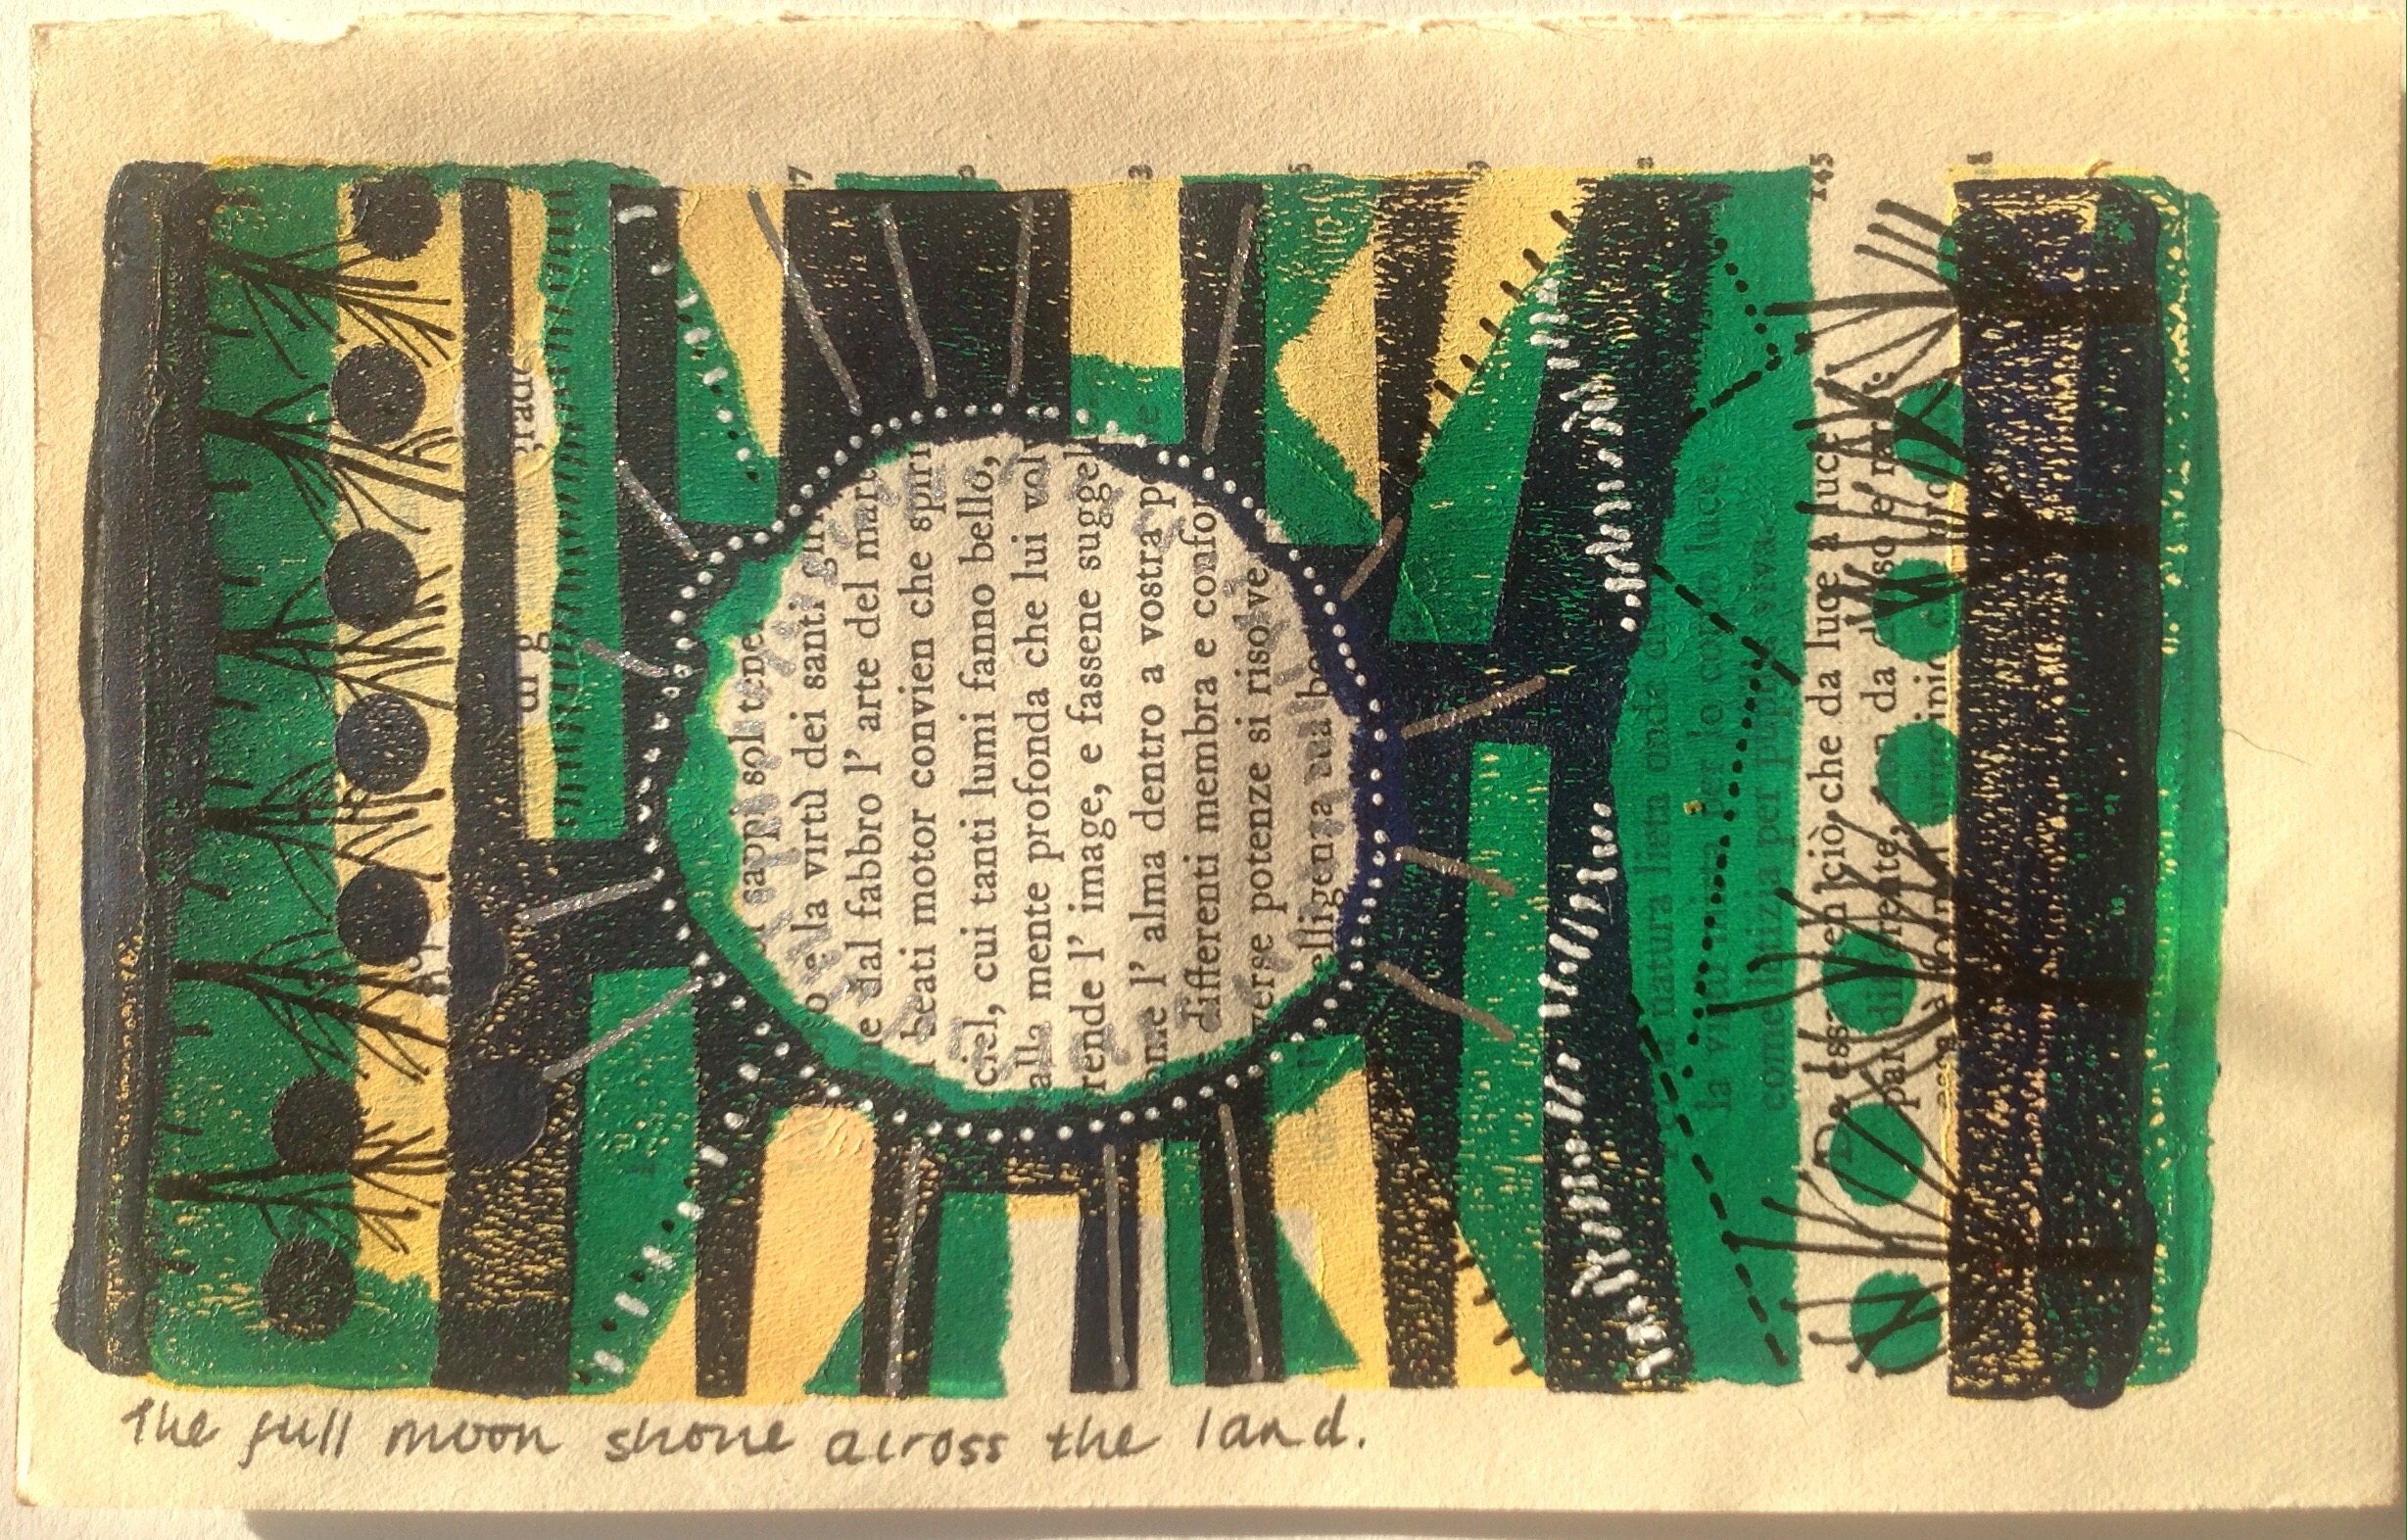 di g
sappi sol tene
o e la virtù dei santi giri
ne dal fabbro l' arte del mart
beati motor convien che spiri
ciel, cui tanti lumi fanno bello,
alla mente profonda che lui vol
rende l' image, e fassene sugge
me l' alma dentro a vostra p
differenti membra e confo
verse potenze si risolve
elligenza sua bo
natura lieta onde
la virtù mista per lo corpo luce,
come letizia per pupilla viva.
145
Da essa vien ciò che da luce a luce
par differente, non da denso e raro:
The full moon shone across the land.